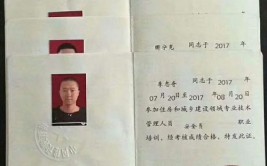 同志于 2017 年
同志于 2017 年
07 月 20 日至 2017 年 08 月 20 日
参加住房和城乡建设领域专业技术
管理人员 安全员 职业
培训，经考核成绩合格，特发此证。